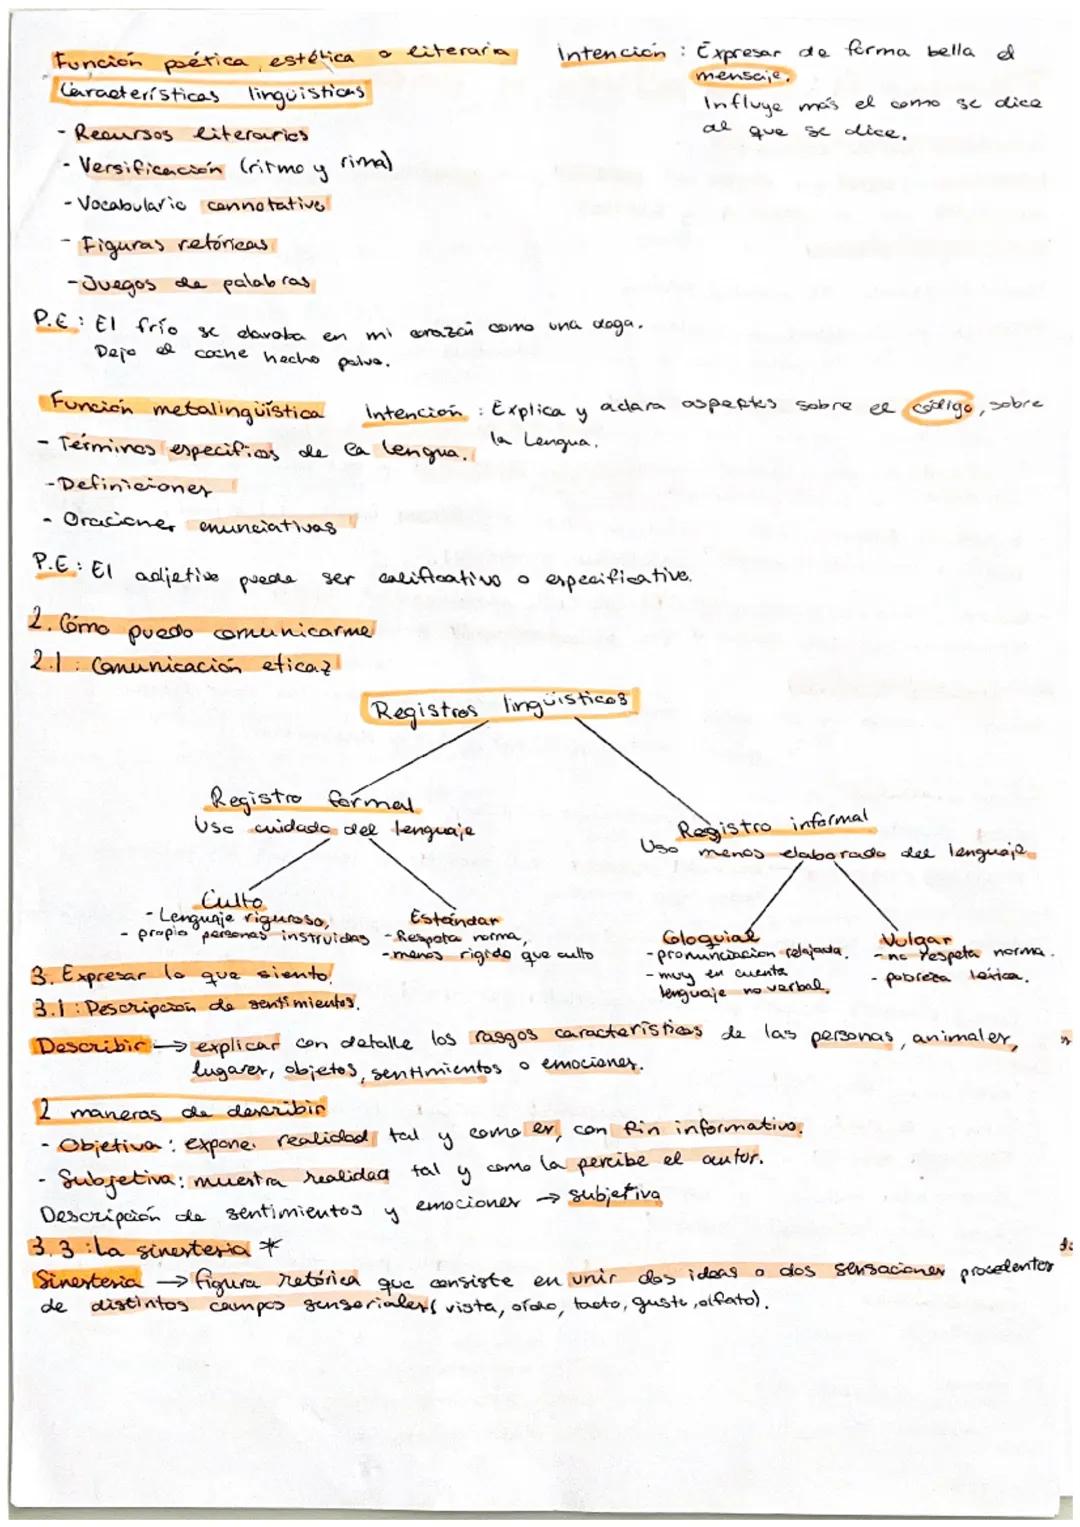 Función poética, estética o literaria
Intención : Expresar de forma bella el
mensaje.
Influye más el como se dice
al que se dice.
Características lingüísticas
- Recursos literarios
- Versificación (ritmo y rima)
- Vocabulario connotativo
- Figuras retóricas
- Juegos de palabras
P.E : El frío se clavaba en mi corazón como una daga.
Dejo el coche hecho polvo.
Función metalingüística
Intención : Explica y aclara aspectos sobre el código, sobre
la Lengua.
- Términos específicos de la lengua.
- Definiciones
- Oraciones enunciativas
P.E : El adjetivo puede ser calificativo o especificativo.
2. Cómo puedo comunicarme
2.1 : Comunicación eficaz
Registros lingüísticos
Registro formal
Uso cuidado del lenguaje
Registro informal
Uso menos elaborado del lenguaje
Culto
- Lenguaje riguroso,
- propio personas instruidas
Estándar
- Respeta norma,
- menos rígido que culto
Coloquial
- pronunciacion relajada.
- muy en cuenta
lenguaje no verbal.
Vulgar
- no respeta norma.
- pobreza léxica.
3. Expresar lo que siento
3.1 : Descripción de sentimientos.
Describir → explicar con detalle los rasgos característicos de las personas, animales,
lugares, objetos, sentimientos o emociones.
2 maneras de describir
- Objetiva : expone realidad tal y como es, con fin informativo.
- Subjetiva: muestra realidad tal y como la percibe el autor.
Descripción de sentimientos y emociones → subjetiva
3.3 : La sinestesia *
Sinestesia → figura retórica que consiste en unir dos ideas o dos sensaciones procedentes
de distintos campos sensoriales ( vista, oído, tacto, gusto, olfato).